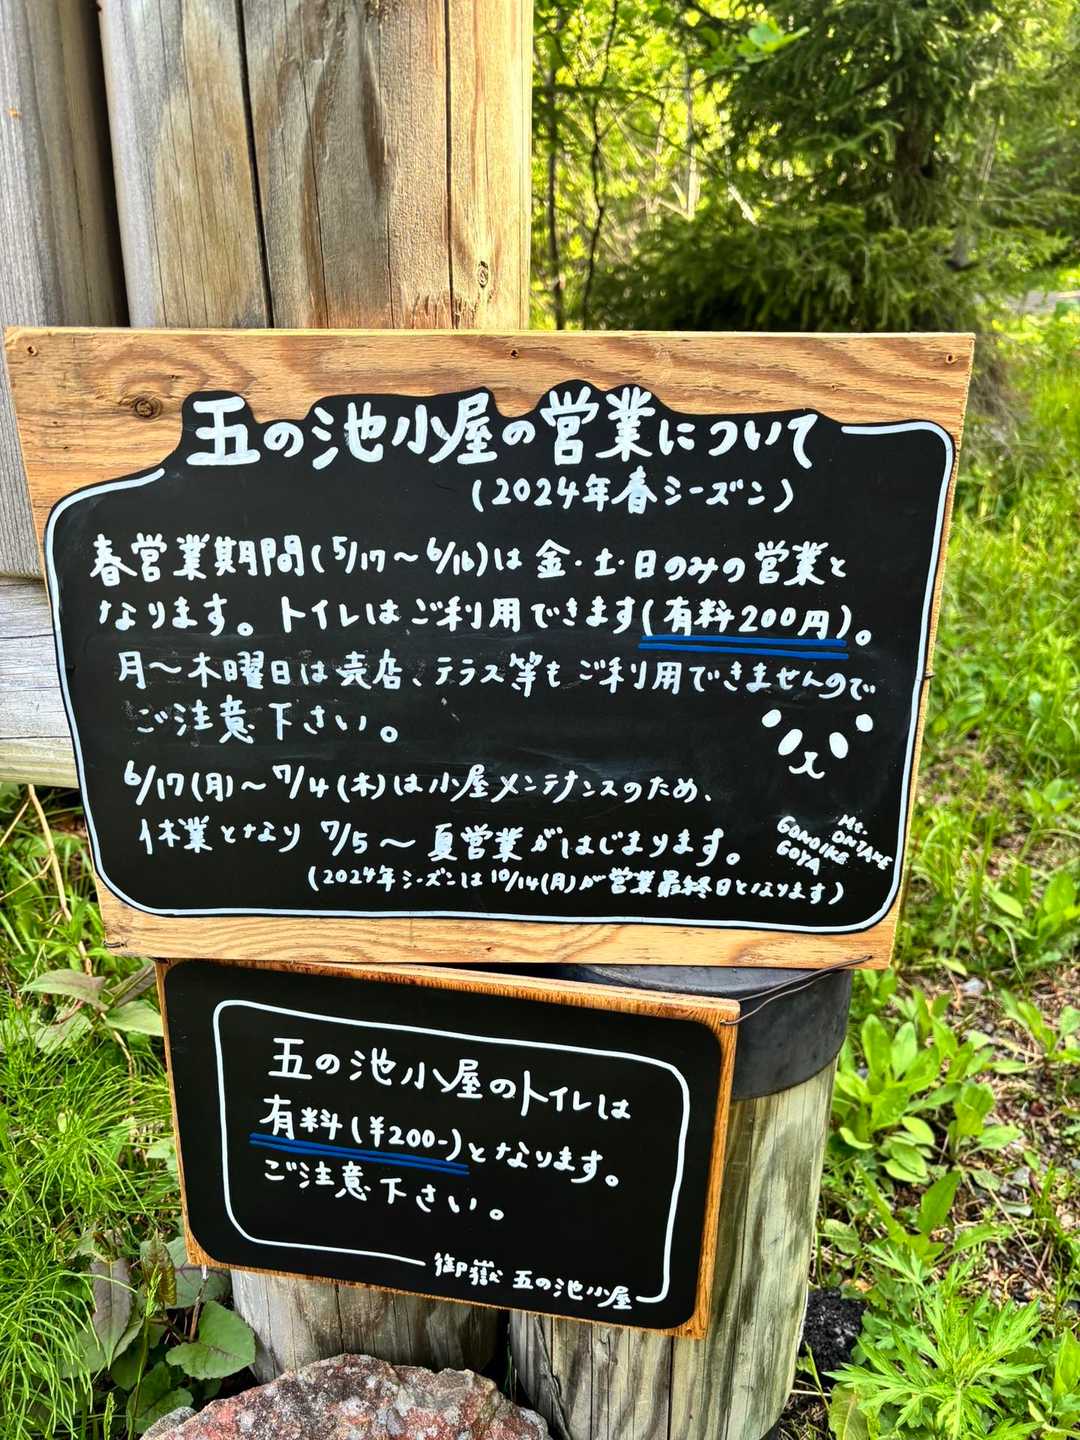 五の池小屋の営業について
(2024年春シーズン)
春営業期間(5/17〜6/16)は金・土・日のみの営業と
なります。トイレはご利用できます(有料200円)。
月〜木曜日は売店、テラス等もご利用できませんので
ご注意下さい。
6/17(月)〜7/4(木)は小屋メンテナンスのため、
休業となり 7/5〜夏営業がはじまります。
(2024年シーズンは10/14(月)が営業最終日となります)
Mt.
ONTAKE
GONOIKE
GOYA
五の池小屋のトイレは
有料(¥200-)となります。
ご注意下さい。
御嶽 五の池小屋